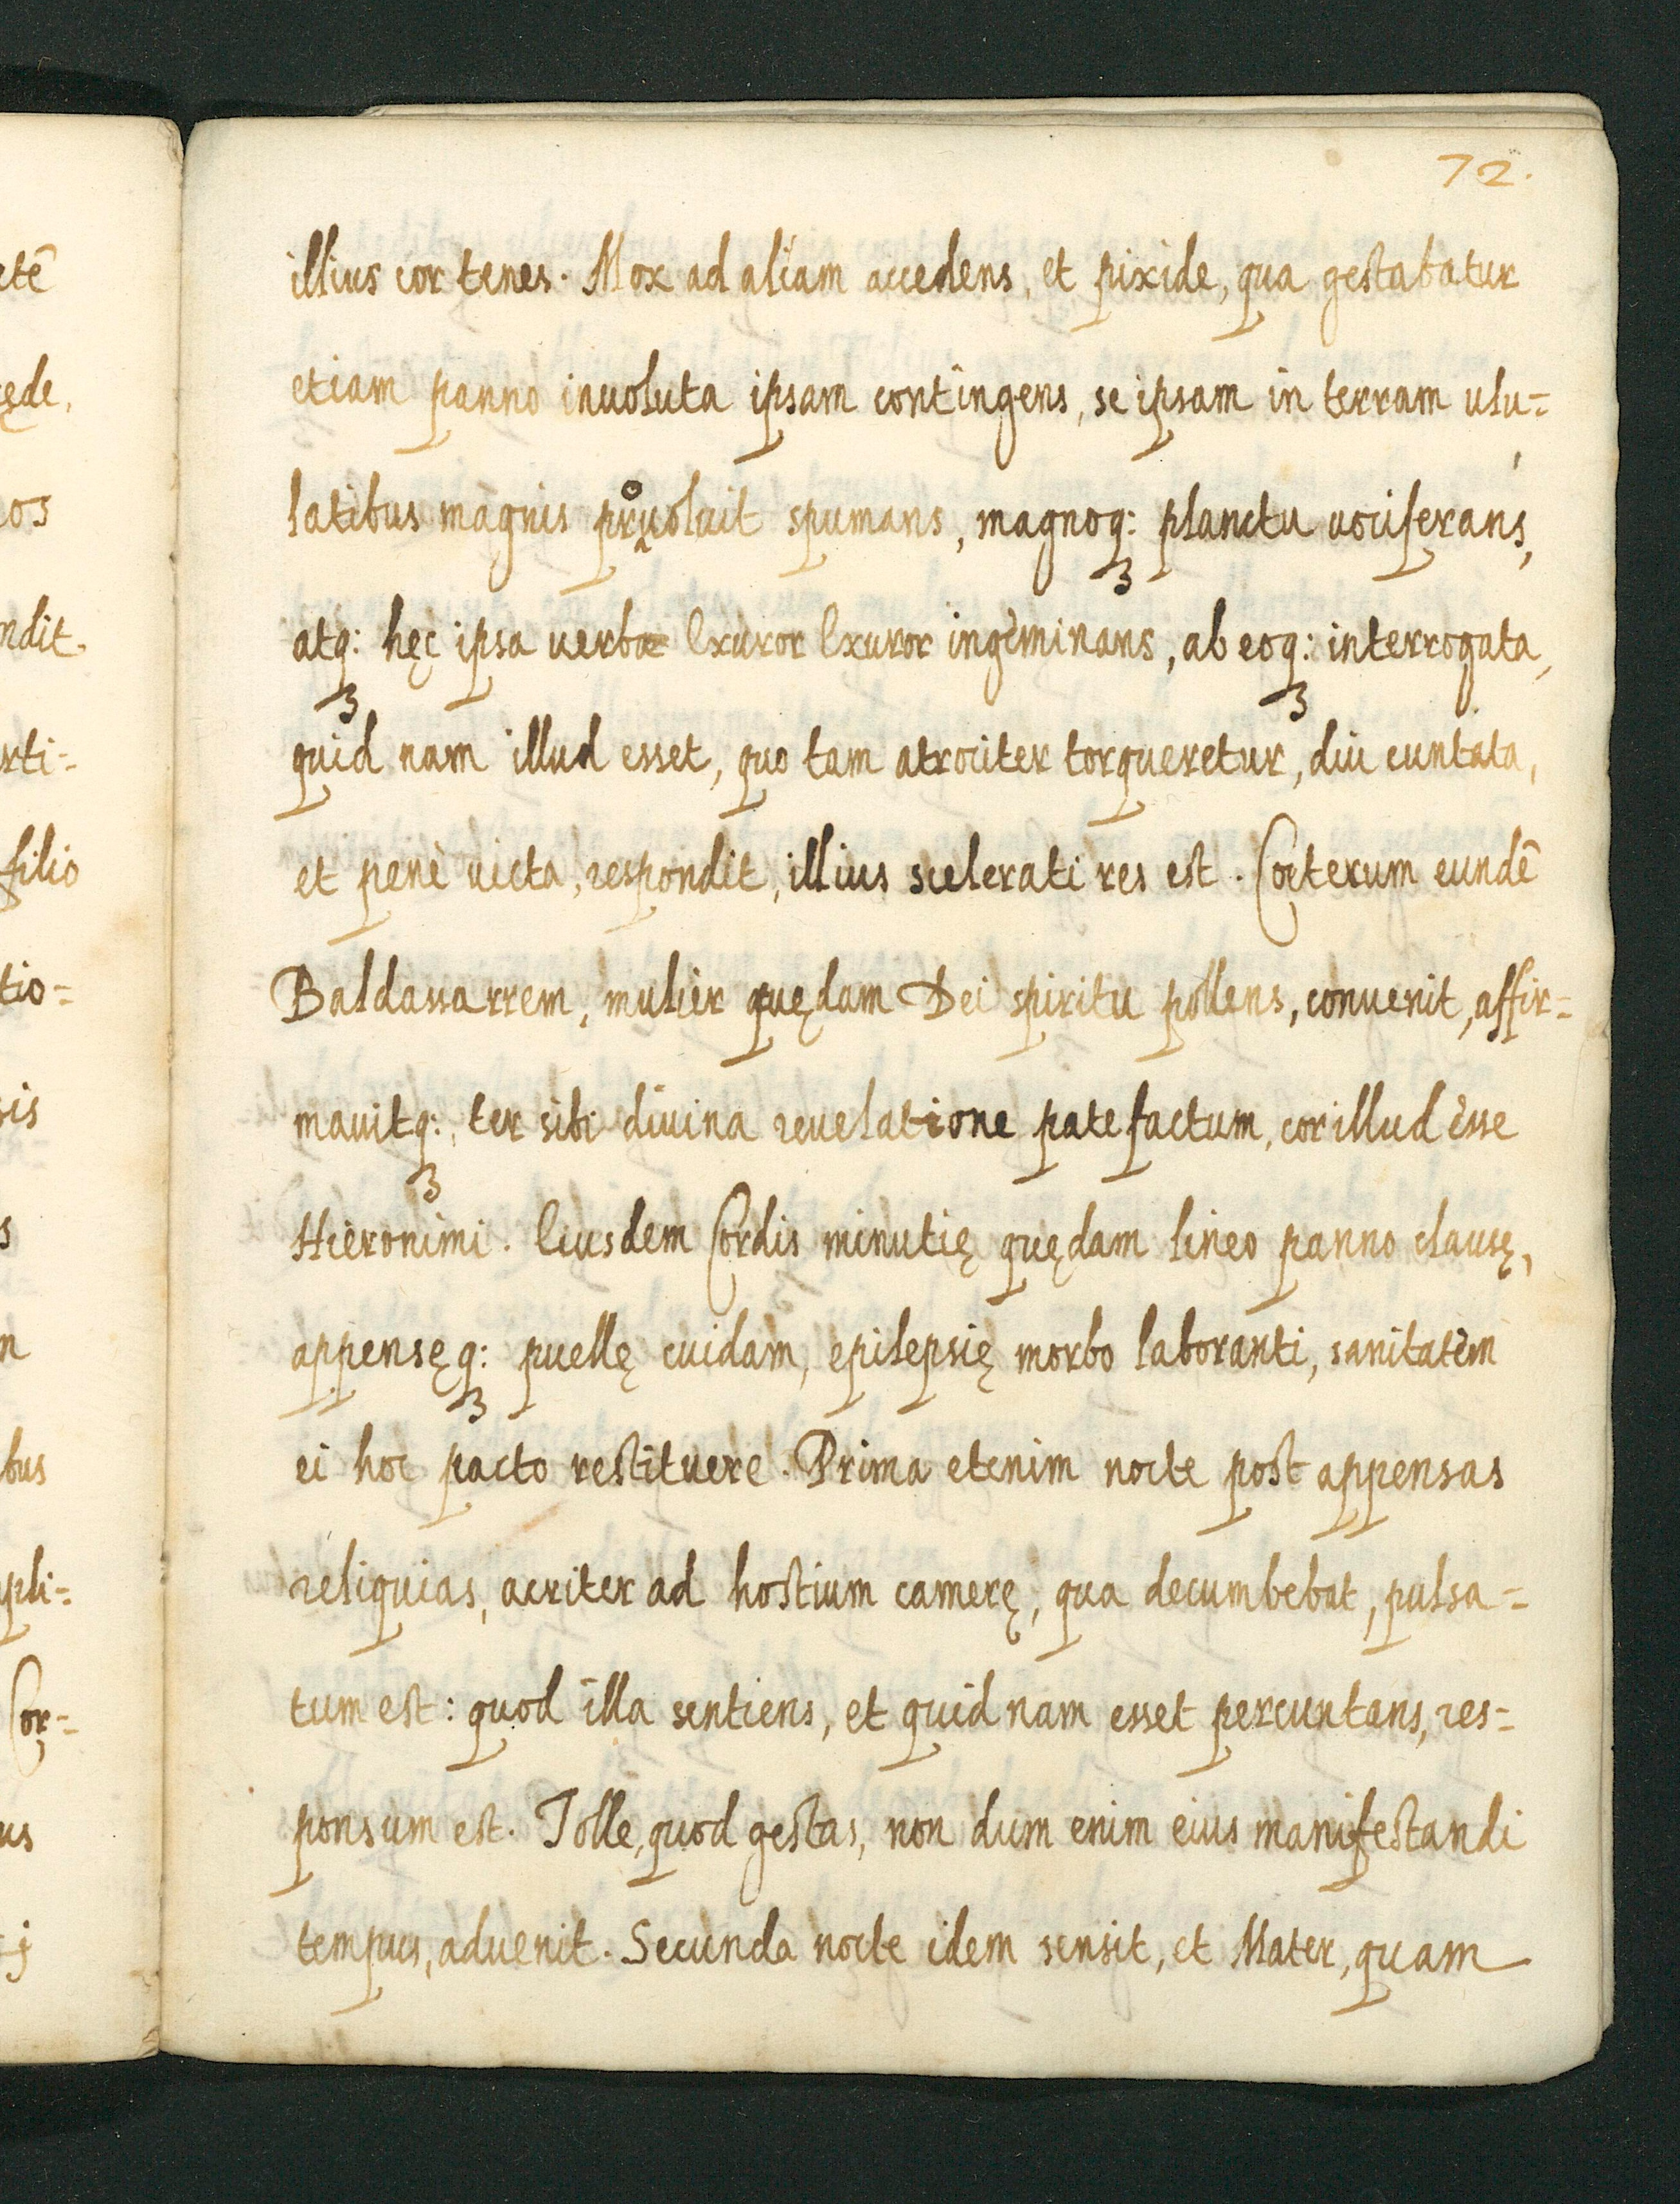 72.
illius cor tenes. Mox ad aliam accedens, et pixide, qua gestabatur
etiam panno inuoluta ipsam contingens, se ipsam in terram ulu=
latibus magnis prouoluit spumans, magnoq: planctu uociferans,
atq: hęc ipsa uerba Exuror Exuror ingèminans, ab eoq: interrogata,
quid nam illud esset, quo tam atrociter torqueretur, diu cuntata,
et penè uicta, respondit, illius scelerati res est. Coeterum eundē
Baldassarrem, mulier quędam Dei spiritu pollens, conuenit, affir=
mauitq:, ter sibi diuina reuelatione patefactum, cor illud esse
Hieronimi. Eiusdem Cordis minutię quędam lineo panno clausę,
appensęq: puellę cuidam, epilepsię morbo laboranti, sanitatem
ei hoc pacto restituere. Prima etenim nocte post appensas
reliquias, acriter ad hostium camerę, qua decumbebat, pulsa=
tum est: quod illa sentiens, et quid nam esset percuntans, res=
ponsum est. Tolle, quod gestas, non dum enim eius manifestandi
tempus, aduenit. Secunda nocte idem sensit, et Mater, quam